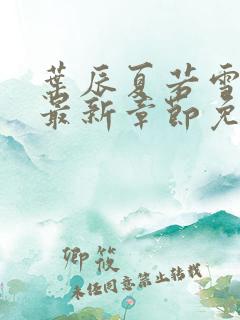 葉辰夏若雪
最新章節免
卿筱
未经同意禁止转载